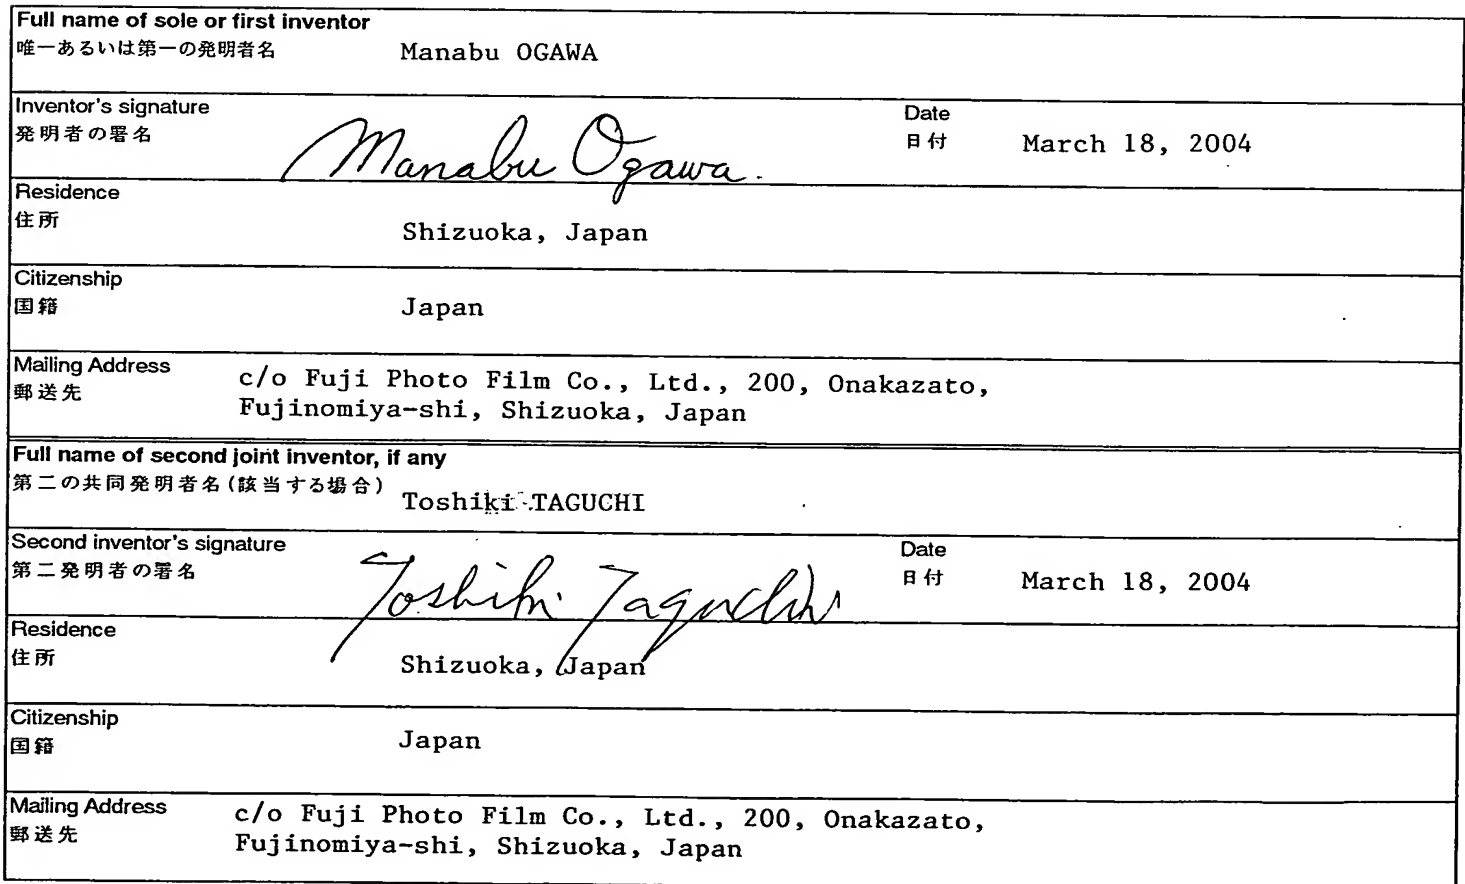 Full name of sole or first inventor
唯一あるいは第一の発明者名 Manabu OGAWA
Inventor's signature
発明者の署名 Manabu Ogawa.
Date
日付 March 18, 2004
Residence
住所 Shizuoka, Japan
Citizenship
国籍 Japan
Mailing Address
郵送先
c/o Fuji Photo Film Co., Ltd., 200, Onakazato,
Fujinomiya-shi, Shizuoka, Japan
Full name of second joint inventor, if any
第二の共同発明者名(該当する場合) Toshiki TAGUCHI
Second inventor's signature
第二発明者の署名 Toshiki Taguchi
Date
日付 March 18, 2004
Residence
住所 Shizuoka, Japan
Citizenship
国籍 Japan
Mailing Address
郵送先
c/o Fuji Photo Film Co., Ltd., 200, Onakazato,
Fujinomiya-shi, Shizuoka, Japan